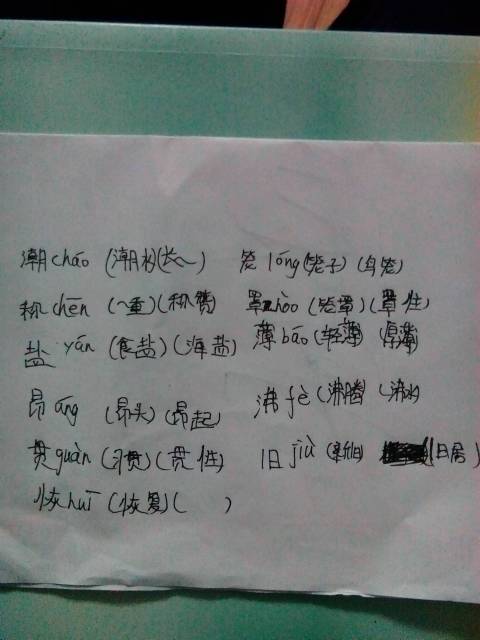 潮cháo (潮水)(长~) 笼lóng(笼子)(鸟笼)
称chēn (~重)(称赞) 罩zhào(笼罩)(罩住)
盐 yán (食盐)(海盐) 薄báo(轻薄)(厚薄)
昂áng (昂头)(昂起) 沸fè(沸腾)(沸水)
贯guàn (习贯)(贯性) 旧jiù(新旧) (旧居)
恢huī (恢复)( )